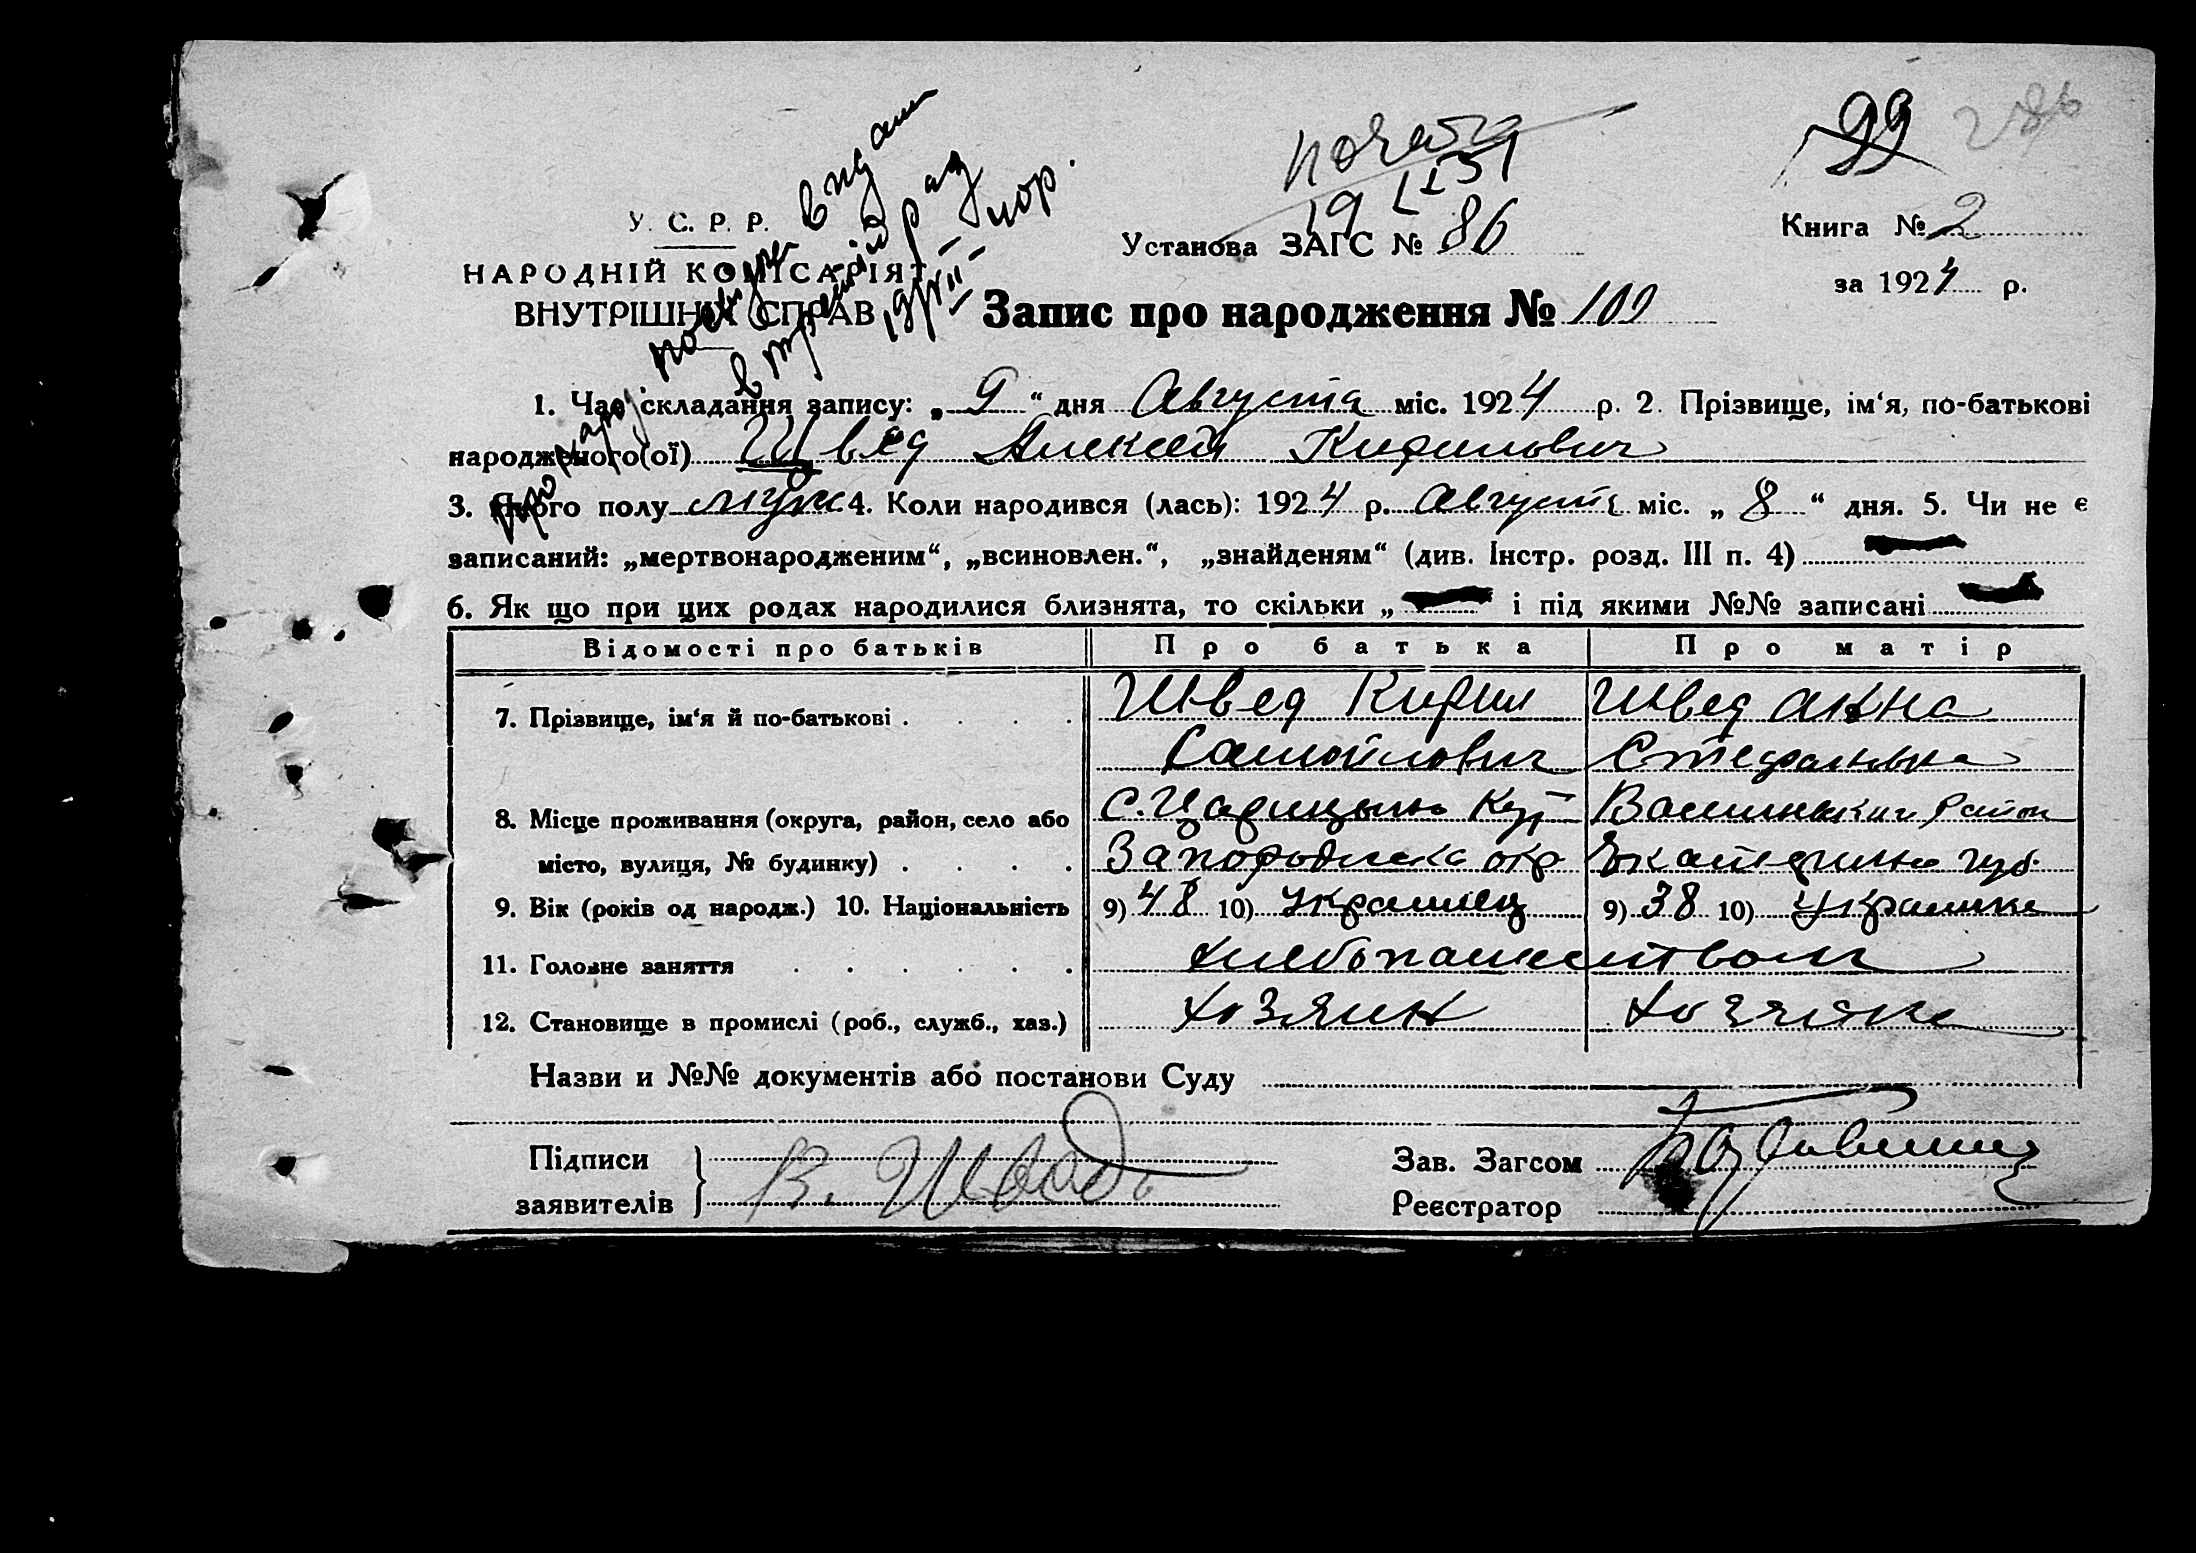 99
У. С. Р. Р.
НАРОДНІЙ КОМІСАРІЯТ
ВНУТРІШНІХ СПРАВ
Установа ЗАГС № 86
Книга № 2
за 1924 р.
Запис про народження №
1. Час складання запису: „ 9 “ дня Августа міс. 1924 р. 2. Прізвище, ім‘я, по-батькові
народженого(ої) Швед Алексей Кирилович
3. Якого полу муж 4. Коли народився (лась): 1924 р. Август міс. „ 8 “ дня. 5. Чи не є
записаний: „мертвонародженим“, „всиновлен.“, „знайденям“ (див. Інстр. розд. III п. 4)
6. Як що при цих родах народилися близнята, то скільки „ і під якими №№ записані
Відомості про батьків Про батька Про матір
7. Прізвище, ім‘я й по-батькові . . . . Швед Кирил Швед Анна
Самойлович Стефановна
8. Місце проживання (округа, район, село або с. Царицын Кут район
місто, вулиця, № будинку) . . . . окр Екатерин губ.
9. Вік (років од народж.) 10. Національність 9) 48 10) Украинец 9) 38 10) Украинка
11. Головне заняття . . . . . . хлебопашеством
12. Становище в промислі (роб., служб., хаз.) хозяин хозяйка
Назви и №№ документів або постанови Суду
Підписи
заявителів
В. Швед
Зав. Загсом
Реєстратор